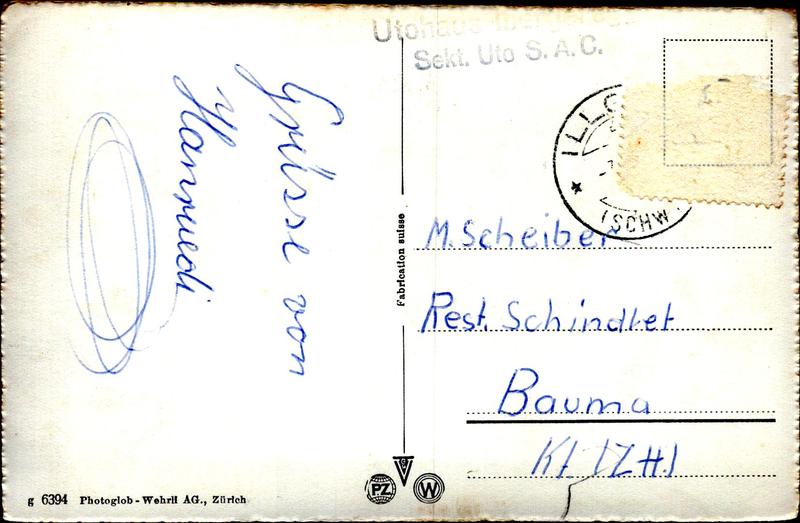 Utohaus Ibergeregg
Sekt. Uto S. A. C.
ILLG
(SCHW
Grüsse von
Hansruedi
Fabrication suisse
M. Scheiber
Rest. Schindlet
Bauma
Kt. (ZH.)
PZ
W
g 6394 Photoglob-Wehrli AG., Zürich